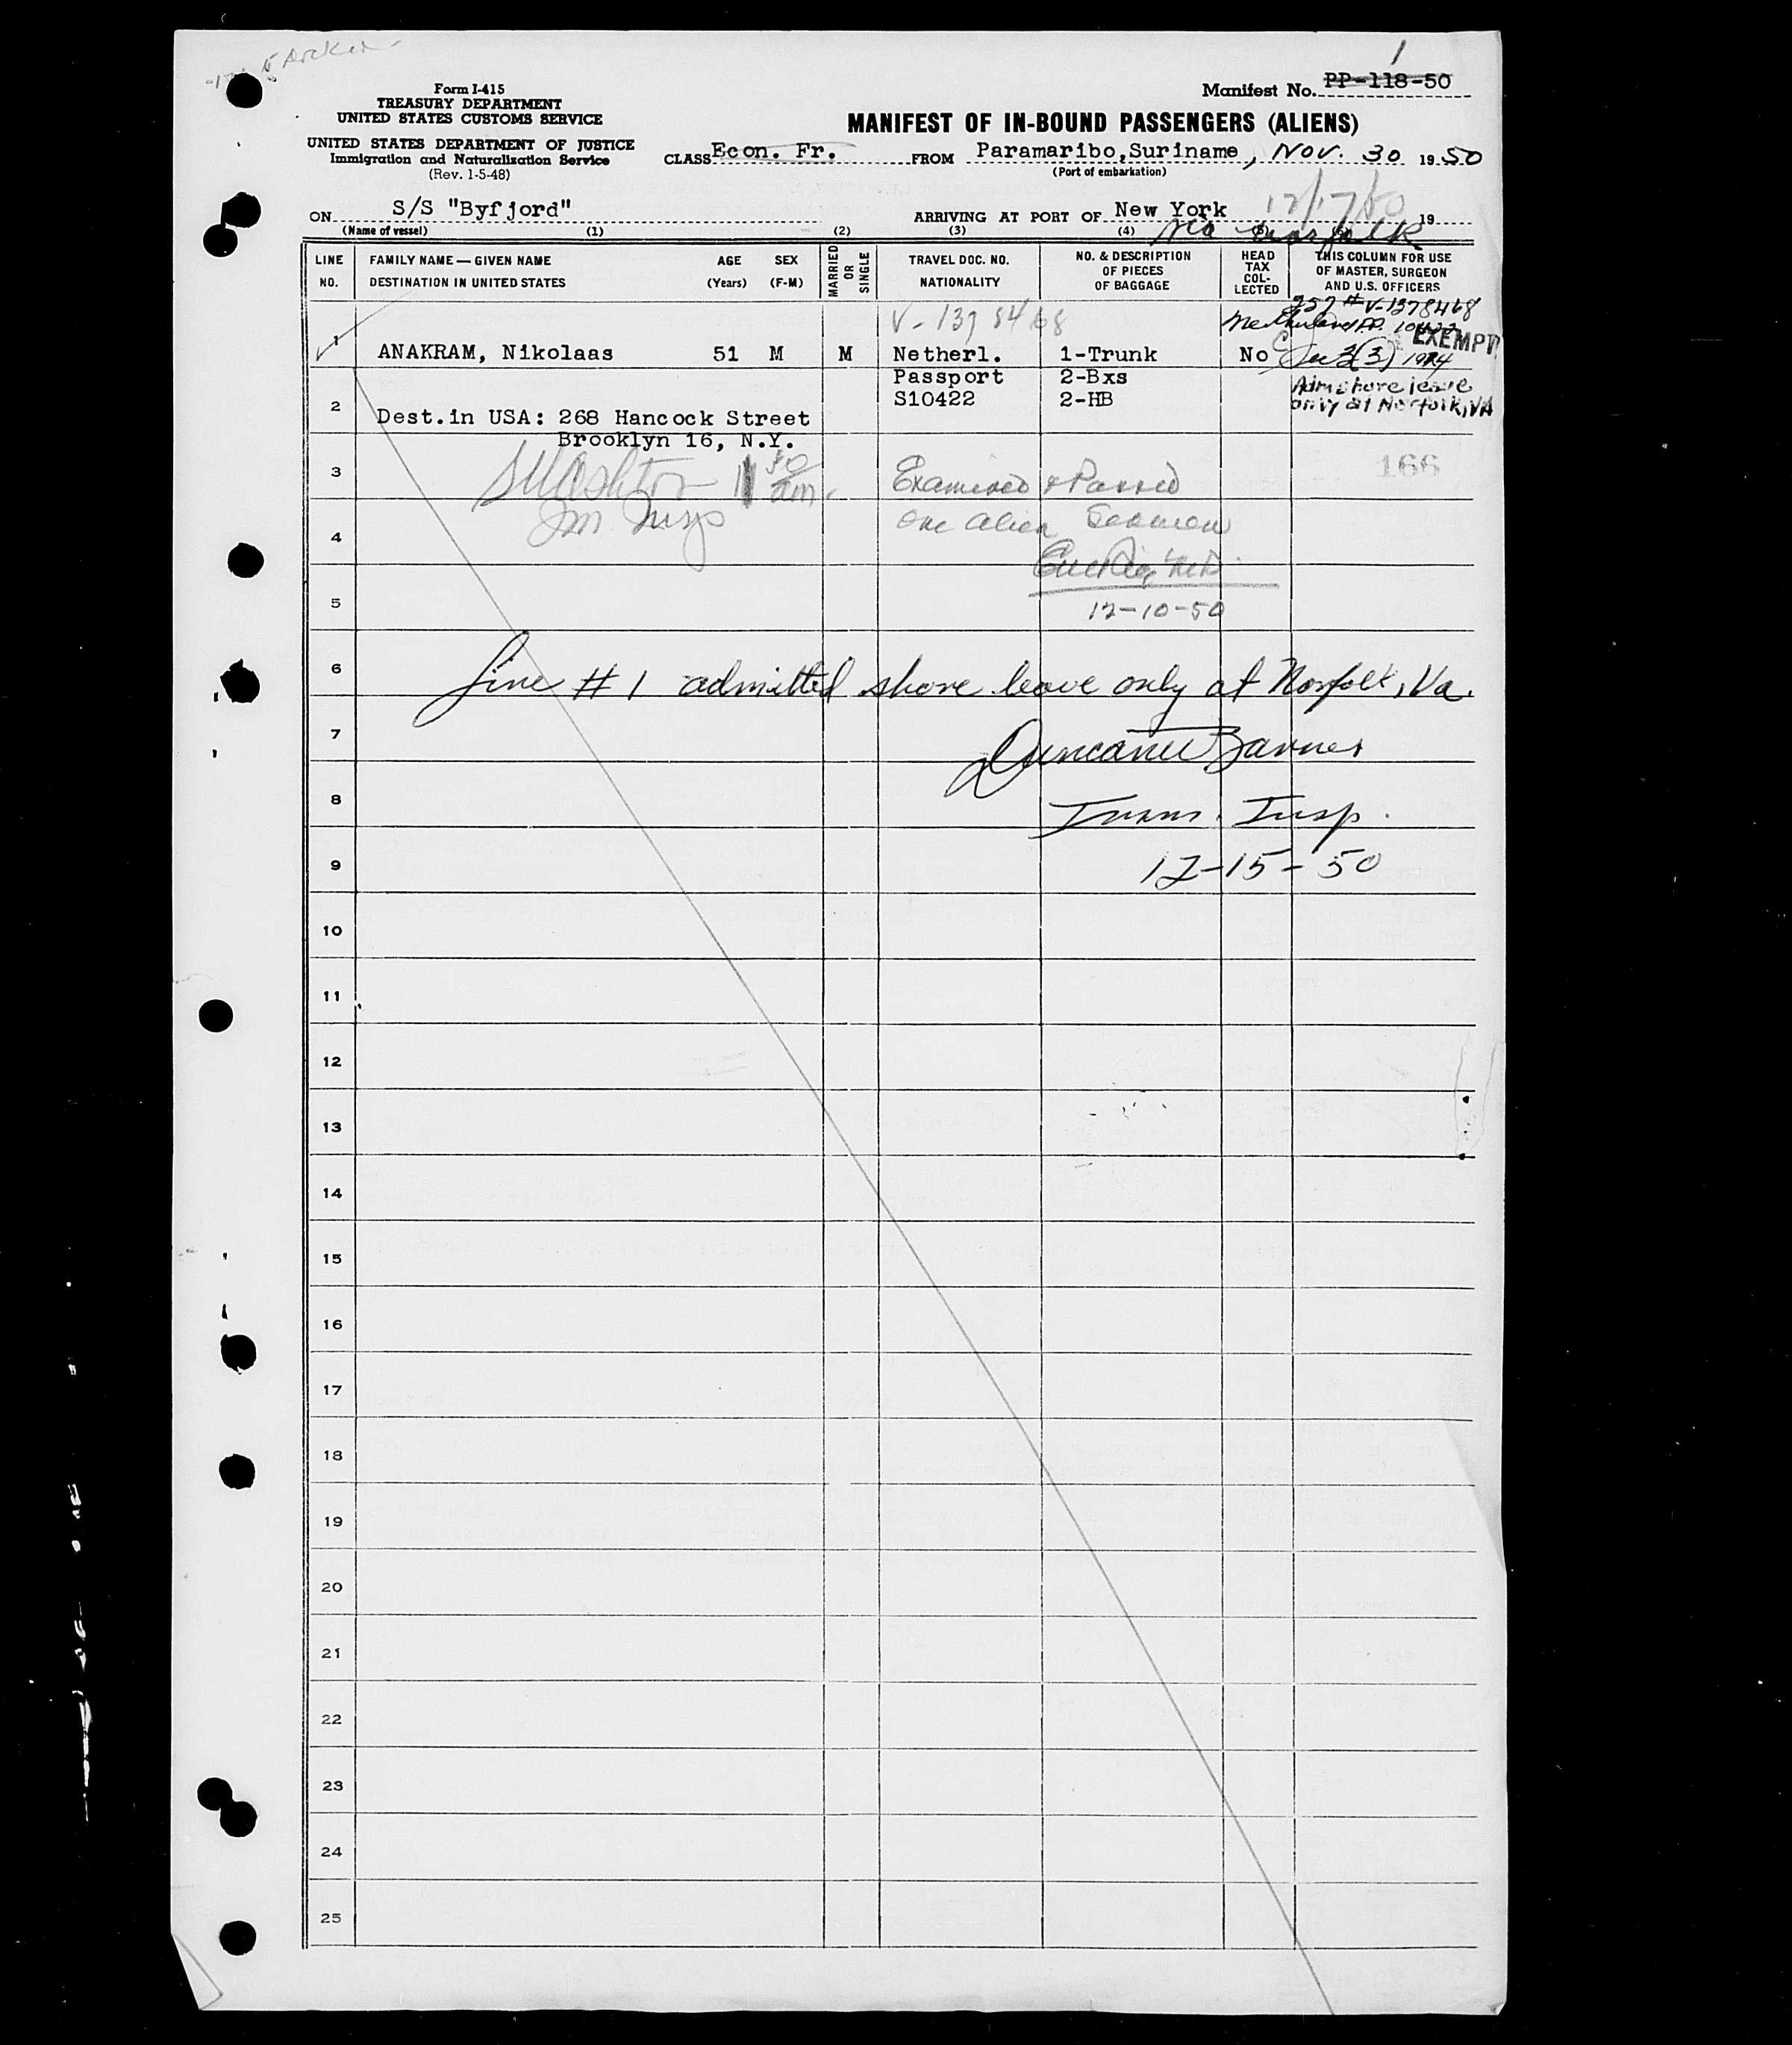 1
Form I-415
TREASURY DEPARTMENT
UNITED STATES CUSTOMS SERVICE
UNITED STATES DEPARTMENT OF JUSTICE
Immigration and Naturalization Service
(Rev. 1-5-48)
Manifest No. PP-118-50
MANIFEST OF IN-BOUND PASSENGERS (ALIENS)
CLASS Econ. Fr. FROM Paramaribo, Suriname, Nov. 30 1950
(Port of embarkation)
ON S/S "Byfjord" ARRIVING AT PORT OF New York 12/17/50 19
via Norfolk
(Name of vessel) (1) (2) (3) (4)
LINE NO.
FAMILY NAME — GIVEN NAME
DESTINATION IN UNITED STATES
AGE (Years)
SEX (F-M)
MARRIED OR SINGLE
TRAVEL DOC. NO.
NATIONALITY
NO. & DESCRIPTION OF PIECES OF BAGGAGE
HEAD TAX COLLECTED
THIS COLUMN FOR USE OF MASTER, SURGEON AND U.S. OFFICERS
257 # V-1378468
V-1378468
Netherland PP. 10422
EXEMPT
1 ANAKRAM, Nikolaas 51 M M Netherl. 1-Trunk No Sec 3(3) 1924
Passport 2-Bxs
S10422 2-HB
Adm shore leave
only at Norfolk, VA
2 Dest.in USA: 268 Hancock Street
Brooklyn 16, N.Y.
166
3 Examined & Passed
4 one alien Seaman
Im. Insp
5 12-10-50
6 Line # 1 admitted shore leave only at Norfolk, Va.
7
8 Imm. Insp.
9 12-15-50
10
11
12
13
14
15
16
17
18
19
20
21
22
23
24
25